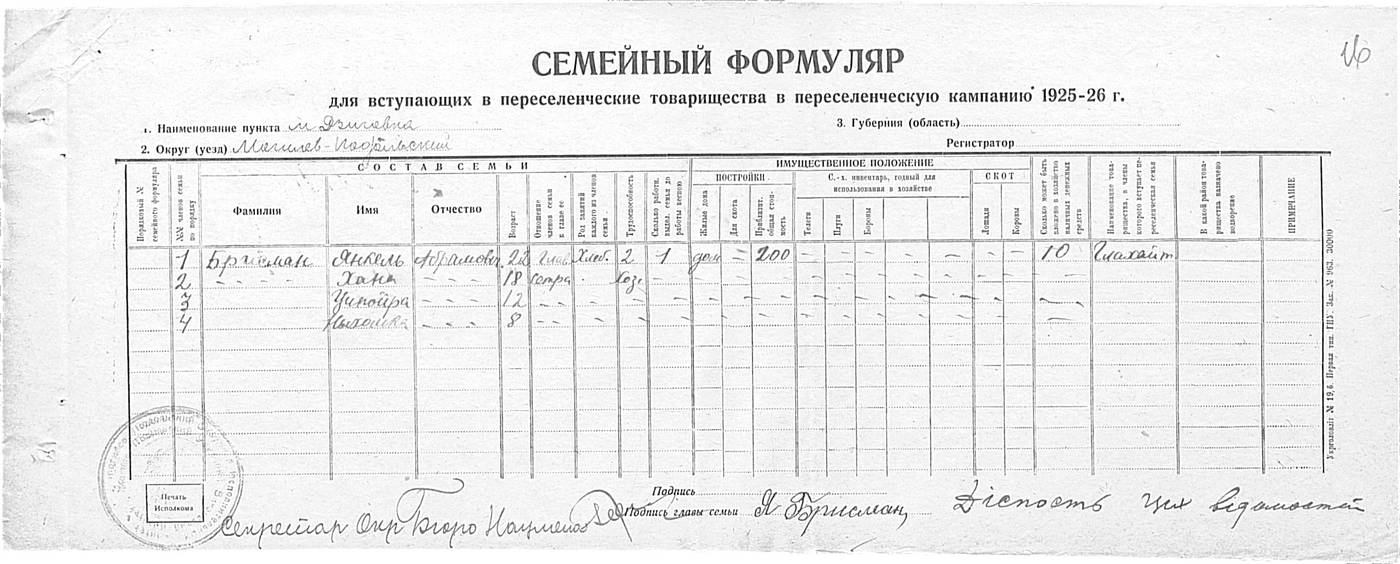 16
СЕМЕЙНЫЙ ФОРМУЛЯР
для вступающих в переселенческие товарищества в переселенческую кампанию 1925-26 г.
1. Наименование пункта м Дзиговка
3. Губерния (область)
2. Округ (уезд) Могилев-Подольский
Регистратор
СОСТАВ СЕМЬИ
ИМУЩЕСТВЕННОЕ ПОЛОЖЕНИЕ
Порядковый № семейного формуляра
№№ членов семьи по порядку
Фамилия
Имя
Отчество
Возраст
Отношение членов семьи к главе ее
Род занятий каждого из членов семьи
Трудоспособность
Сколько работн. выдел. семья до работы весною
ПОСТРОЙКИ
Жилые дома
Для скота
Приблизит. общая стоимость
С.-х. инвентарь, годный для использования в хозяйстве
Телеги
Плуги
Бороны
СКОТ
Лошади
Коровы
Сколько может быть вложено в хозяйство наличных денежных средств
Наименование товарищества, в члены которого вступает переселенческая семья
В какой район товарищества назначено водворение
ПРИМЕЧАНИЕ
1 Брисман Янкель Абрамович 22 Глав Хлеб. 2 1 дом — 200 — — — — — — — 10
2 - - - - Хана - - - 18 сестра Хозг — — — —
3 Ципойра - - - 12 - - — — — —
4 - - - 8 - - — — — —
Укрголовлит № 19,6. Первая тип. ГПУ. Зак. № 963. 30000
Печать Исполкома
Подпись
Подпись главы семьи Я Брисман,
Секретар Окр Бюро Нацменов
Дійсность цих ведомостей